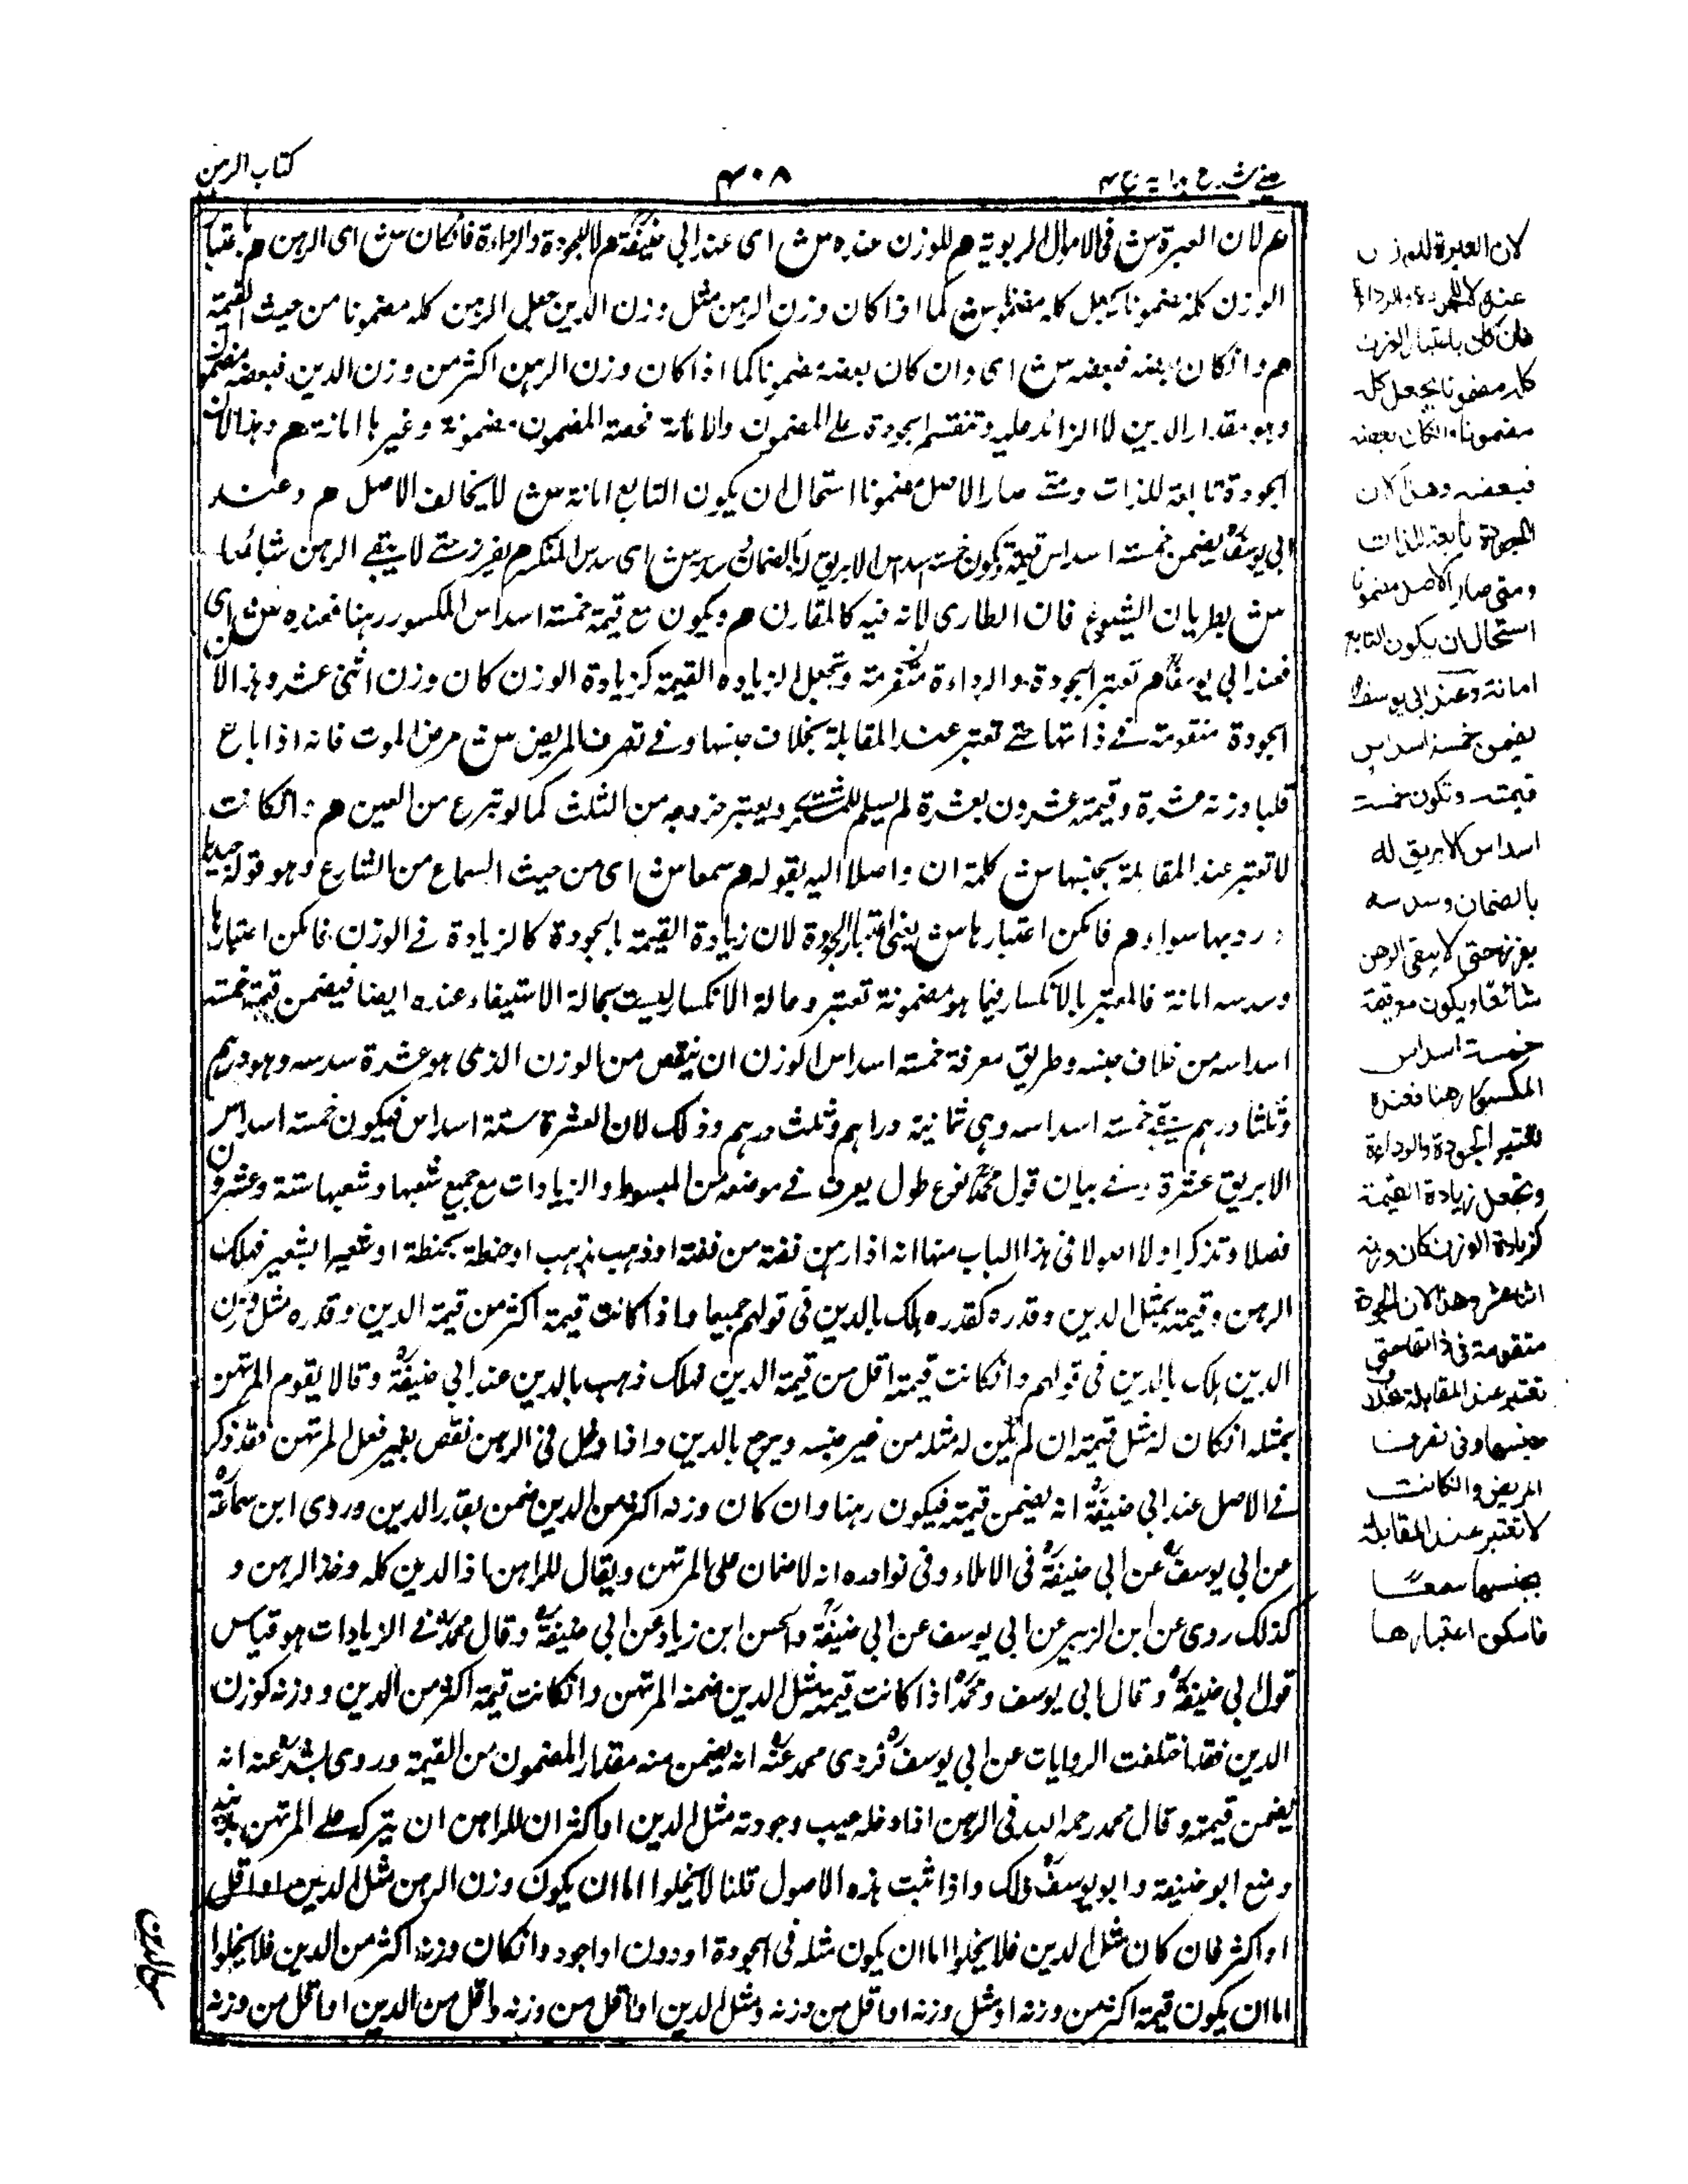 كتاب الرهن
٤٠٨
م لان العبرة ش فى الاموال الربوية م للوزن عنده ش اى عند ابي حنيفة م لا للجودة والرداءة فان كان ش اى الرهن م باعتبار
الوزن كله مضمونا يجعل كله مضمونا ش كما اذا كان وزن الرهن مثل وزن الدين جعل الرهن كله مضمونا من حيث القيمة
م وان كان بعضه فبعضه ش اى وان كان بعضه مضمونا كما اذا كان وزن الرهن اكثر من وزن الدين فبعضه مضمون
وهو مقدار الدين لا الزائد عليه وتنقسم الجودة على المضمون والامانة فحصة المضمون مضمونة وغيرها امانة م وهذا لان
الجودة تابعة للذات ومتى صار الاصل مضمونا استحال ان يكون التابع امانة ش لا يخالف الاصل م وعند
ابي يوسف يضمن خمسة اسداس قيمته وتكون خمسة اسداس الابريق له بالضمان وسدسه ش اى سدس المنكسر م يفرز حتى لا يبقى الرهن شائعا
ش بطريان الشيوع فان الطارى لانه فيه كالمقارن م ويكون مع قيمة خمسة اسداس المكسور رهنا فعنده ش اى
فعند ابي يوسف م تعتبر الجودة والرداءة وتجعل زيادة القيمة كزيادة الوزن كان وزن اثنى عشر وهذا لان
الجودة متقومة فى ذاتها حتى تعتبر عند المقابلة بخلاف جنسها وفى تصرف المريض ش مرض الموت فانه اذا باع
قلبا وزنه عشرة وقيمته عشرون بعشرة لم يسلم للمشترى ويعتبر خروجه من الثلث كما لو تبرع من العين م وان كانت
لا تعتبر عند المقابلة بجنسها ش كلمة ان واصلا اليه بقوله م سمعا ش اى من حيث السماع من الشارع وهو قوله جيدها
ورديها سواء م فامكن اعتبارها ش يعنى اعتبار الجودة لان زيادة القيمة بالجودة كالزيادة فى الوزن فامكن اعتبارها
وسدسه امانة فالمعتبر بالانكسار فيما هو مضمونة تعتبر وحالة الانكسار ليست بحالة الاستيفاء عنده ايضا فيضمن قيمة خمسة
اسداسه من خلاف جنسه وطريق معرفة خمسة اسداس الوزن ان ينقص من الوزن الذى هو عشرة سدسه وهو درهم
وثلثا درهم يبقى خمسة اسداسه وهى ثمانية دراهم وثلث درهم وذلك لان العشرة ستة اسداس فيكون خمسة اسداس
الابريق عشرة وفى بيان قول محمد نوع طول يعرف فى موضعه من المبسوط والزيادات مع جميع شعبها وشعبها ستة وعشرون
فصلا وتذكر اولا اصولا فى هذا الباب منها انه اذا رهن فضة من فضة او ذهب بذهب او حنطة بحنطة او شعير الشعير فهلك
الرهن وقيمته بمثل الدين وقدره كقدره هلك بالدين فى قولهم جميعا واذا كانت قيمة اكثر من قيمة الدين وقدره مثل وزن
الدين هلك بالدين فى قولهم وان كانت قيمته اقل من قيمة الدين فهلك ذهب بالدين عند ابي حنيفة وقالا يقوم المرتهن
بمثله ان كان له مثل قيمته ان لم يكن له مثله من غير جنسه ويرجع بالدين واذا دخل فى الرهن نقص بغير فعل المرتهن فقد ذكر
فى الاصل عند ابي حنيفة انه يضمن قيمته فيكون رهنا وان كان وزنه اكثر من الدين ضمن بقدر الدين وروى ابن سماعة
عن ابي يوسف عن ابي حنيفة فى الاملاء وفى نوادره انه لا ضمان على المرتهن ويقال للراهن اد الدين كله وخذ الرهن و
كذلك روى عن ابن الزبير عن ابي يوسف عن ابي حنيفة والحسن ابن زياد عن ابي حنيفة وقال محمد فى الزيادات هو قياس
قول ابي حنيفة وقال ابي يوسف ومحمد اذا كانت قيمته مثل الدين ضمنه المرتهن وان كانت قيمته اكثر من الدين ووزنه كوزن
الدين فقد اختلفت الروايات عن ابي يوسف فروى محمد عنه انه يضمن منه مقدار المضمون من القيمة وروى بشر عنه انه
يضمن قيمته وقال محمد رحمه الله فى الرهن اذا دخله عيب وجودته مثل الدين او اكثر ان للراهن ان يتركه على المرتهن بدينه
ومنع ابو حنيفة وابو يوسف ذلك واذا ثبت هذه الاصول قلنا لا يخلوا اما ان يكون وزن الرهن مثل الدين او اقل
او اكثر فان كان مثل الدين فلا يخلوا اما ان يكون مثله فى الجودة او دون او اجود وان كان وزنه اكثر من الدين فلا يخلوا
اما ان يكون قيمته اكثر من وزنه او مثل وزنه او اقل من وزنه ومثل الدين او اقل من وزنه واقل من الدين او اقل من وزنه
لان العبرة للوزن
عنده لا للجودة والرداءة
فان كان باعتبار الوزن
كله مضمونا يجعل كله
مضمونا وان كان بعضه
فبعضه وهذا لان
الجودة تابعة للذات
ومتى صار الاصل مضمونا
استحال ان يكون التابع
امانة وعند ابي يوسف
يضمن خمسة اسداس
قيمته وتكون خمسة
اسداس الابريق له
بالضمان وسدسه
يفرز حتى لا يبقى الرهن
شائعا ويكون مع قيمة
خمسة اسداس
المكسور رهنا فعنده
تعتبر الجودة والرداءة
وتجعل زيادة القيمة
كزيادة الوزن كان وزنه
اثنا عشر وهذا لان الجودة
متقومة فى ذاتها حتى
تعتبر عند المقابلة بخلاف
جنسها وفى تصرف
المريض وان كانت
لا تعتبر عند المقابلة
بجنسها سمعا
فامكن اعتبارها